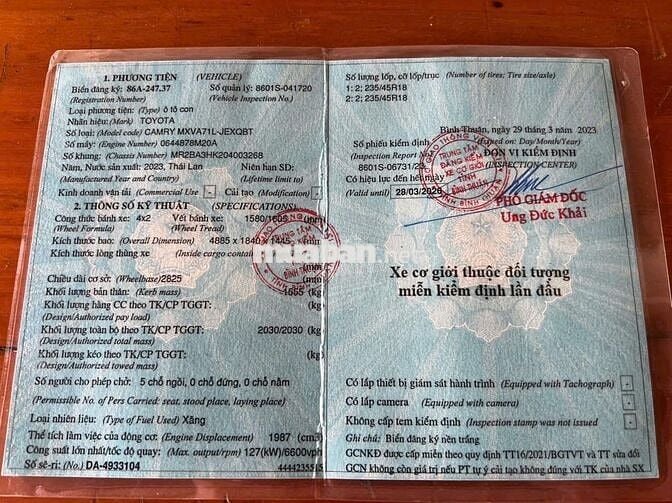 1. PHƯƠNG TIỆN (VEHICLE)
Biển đăng ký: 86A-247.37 Số quản lý: 8601S-041720
(Registration Number) (Vehicle Inspection No.)
Loại phương tiện: (Type) ô tô con
Nhãn hiệu: (Mark) TOYOTA
Số loại: (Model code) CAMRY MXVA71L-JEXQBT
Số máy: (Engine Number) 0644878M20A
Số khung: (Chassis Number) MR2BA3HK204003268
Năm, Nước sản xuất: 2023, Thái Lan Niên hạn SD:
(Manufactured Year and Country) (Lifetime limit to)
Kinh doanh vận tải (Commercial Use) - Cải tạo (Modification) -
2. THÔNG SỐ KỸ THUẬT (SPECIFICATIONS)
Công thức bánh xe: 4x2 Vết bánh xe: 1580/1605 (mm)
(Wheel Formula) (Wheel Tread)
Kích thước bao: (Overall Dimension) 4885 x 1840 x 1445 (mm)
Kích thước lòng thùng xe (Inside cargo container)
(mm)
Chiều dài cơ sở: (Wheelbase) 2825 (mm)
Khối lượng bản thân: (Kerb mass) 1565 (kg)
Khối lượng hàng CC theo TK/CP TGGT: (kg)
(Design/Authorized pay load)
Khối lượng toàn bộ theo TK/CP TGGT: 2030/2030 (kg)
(Design/Authorized total mass)
Khối lượng kéo theo TK/CP TGGT: (kg)
(Design/Authorized towed mass)
Số người cho phép chở: 5 chỗ ngồi, 0 chỗ đứng, 0 chỗ nằm
(Permissible No. of Pers Carried: seat, stood place, laying place)
Loại nhiên liệu: (Type of Fuel Used) Xăng
Thể tích làm việc của động cơ: (Engine Displacement) 1987 (cm3)
Công suất lớn nhất/tốc độ quay: (Max. output/rpm) 127(kW)/6600vph
Số sê-ri: (No.) DA-4933104
Số lượng lốp, cỡ lốp/trục (Number of tires; Tire size/axle)
1: 2; 235/45R18
2: 2; 235/45R18
Bình Thuận, ngày 29 tháng 3 năm 2023
Số phiếu kiểm định (Issued on: Day/Month/Year)
(Inspection Report No) ĐƠN VỊ KIỂM ĐỊNH
8601S-06731/23 (INSPECTION CENTER)
Có hiệu lực đến hết ngày
(Valid until) 28/03/2026
PHÓ GIÁM ĐỐC
Ung Đức Khải
SỞ GIAO THÔNG VẬN TẢI
TRUNG TÂM
ĐĂNG KIỂM
XE CƠ GIỚI
BÌNH THUẬN
TỈNH BÌNH THUẬN
Xe cơ giới thuộc đối tượng
miễn kiểm định lần đầu
Có lắp thiết bị giám sát hành trình (Equipped with Tachograph) -
Có lắp camera (Equipped with camera) -
Không cấp tem kiểm định (Inspection stamp was not issued) -
Ghi chú: Biển đăng ký nền trắng
GCNKĐ được cấp miễn theo quy định TT16/2021/BGTVT và TT sửa đổi
GCN không còn giá trị nếu PT tự ý cải tạo không đúng với TK của nhà SX